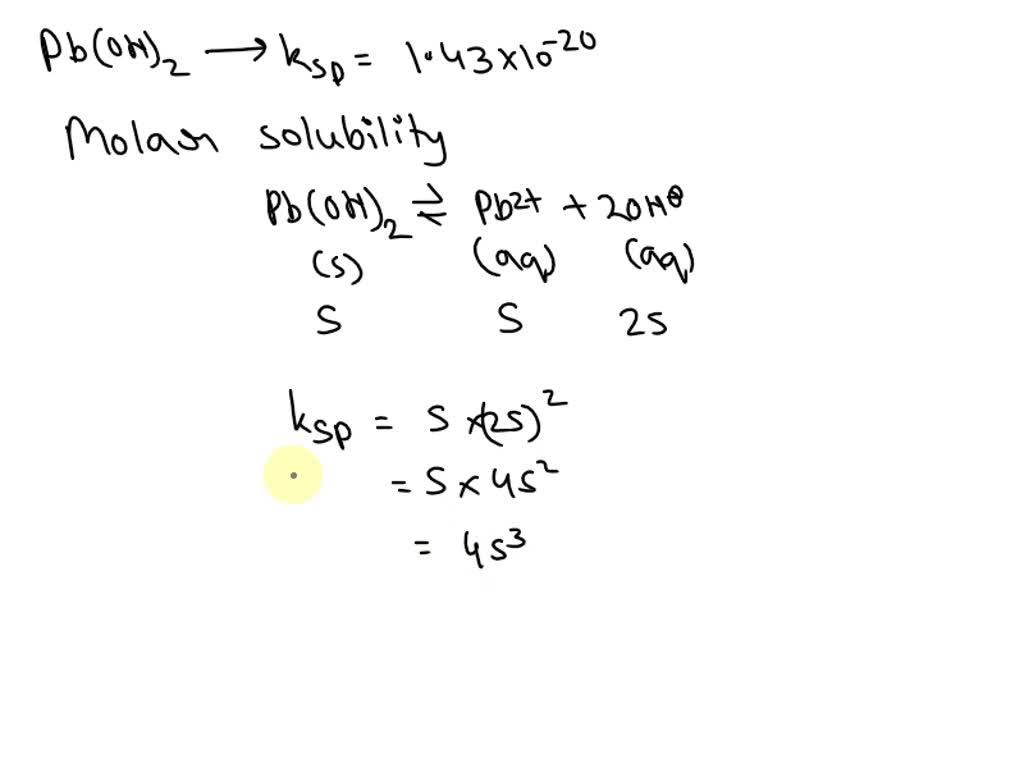 Pb(OH)₂ ⟶ Ksp = 1.43×10⁻²⁰
Molar solubility
Pb(OH)₂ ⇌ Pb²⁺ + 2OH⊖
(s) (aq) (aq)
S S 2S
Ksp = S×(2S)²
= S × 4S²
= 4S³